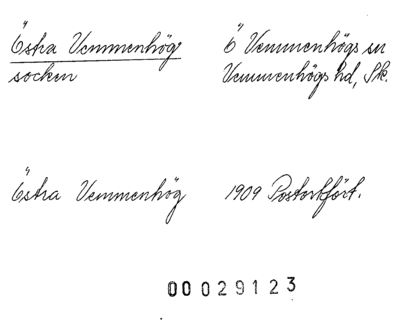 Östra Vemmenhög
socken
Ö Vemmenhögs sn
Vemmenhögs hd, Sk.
Östra Vemmenhög
1909 Postortfört.
00029123